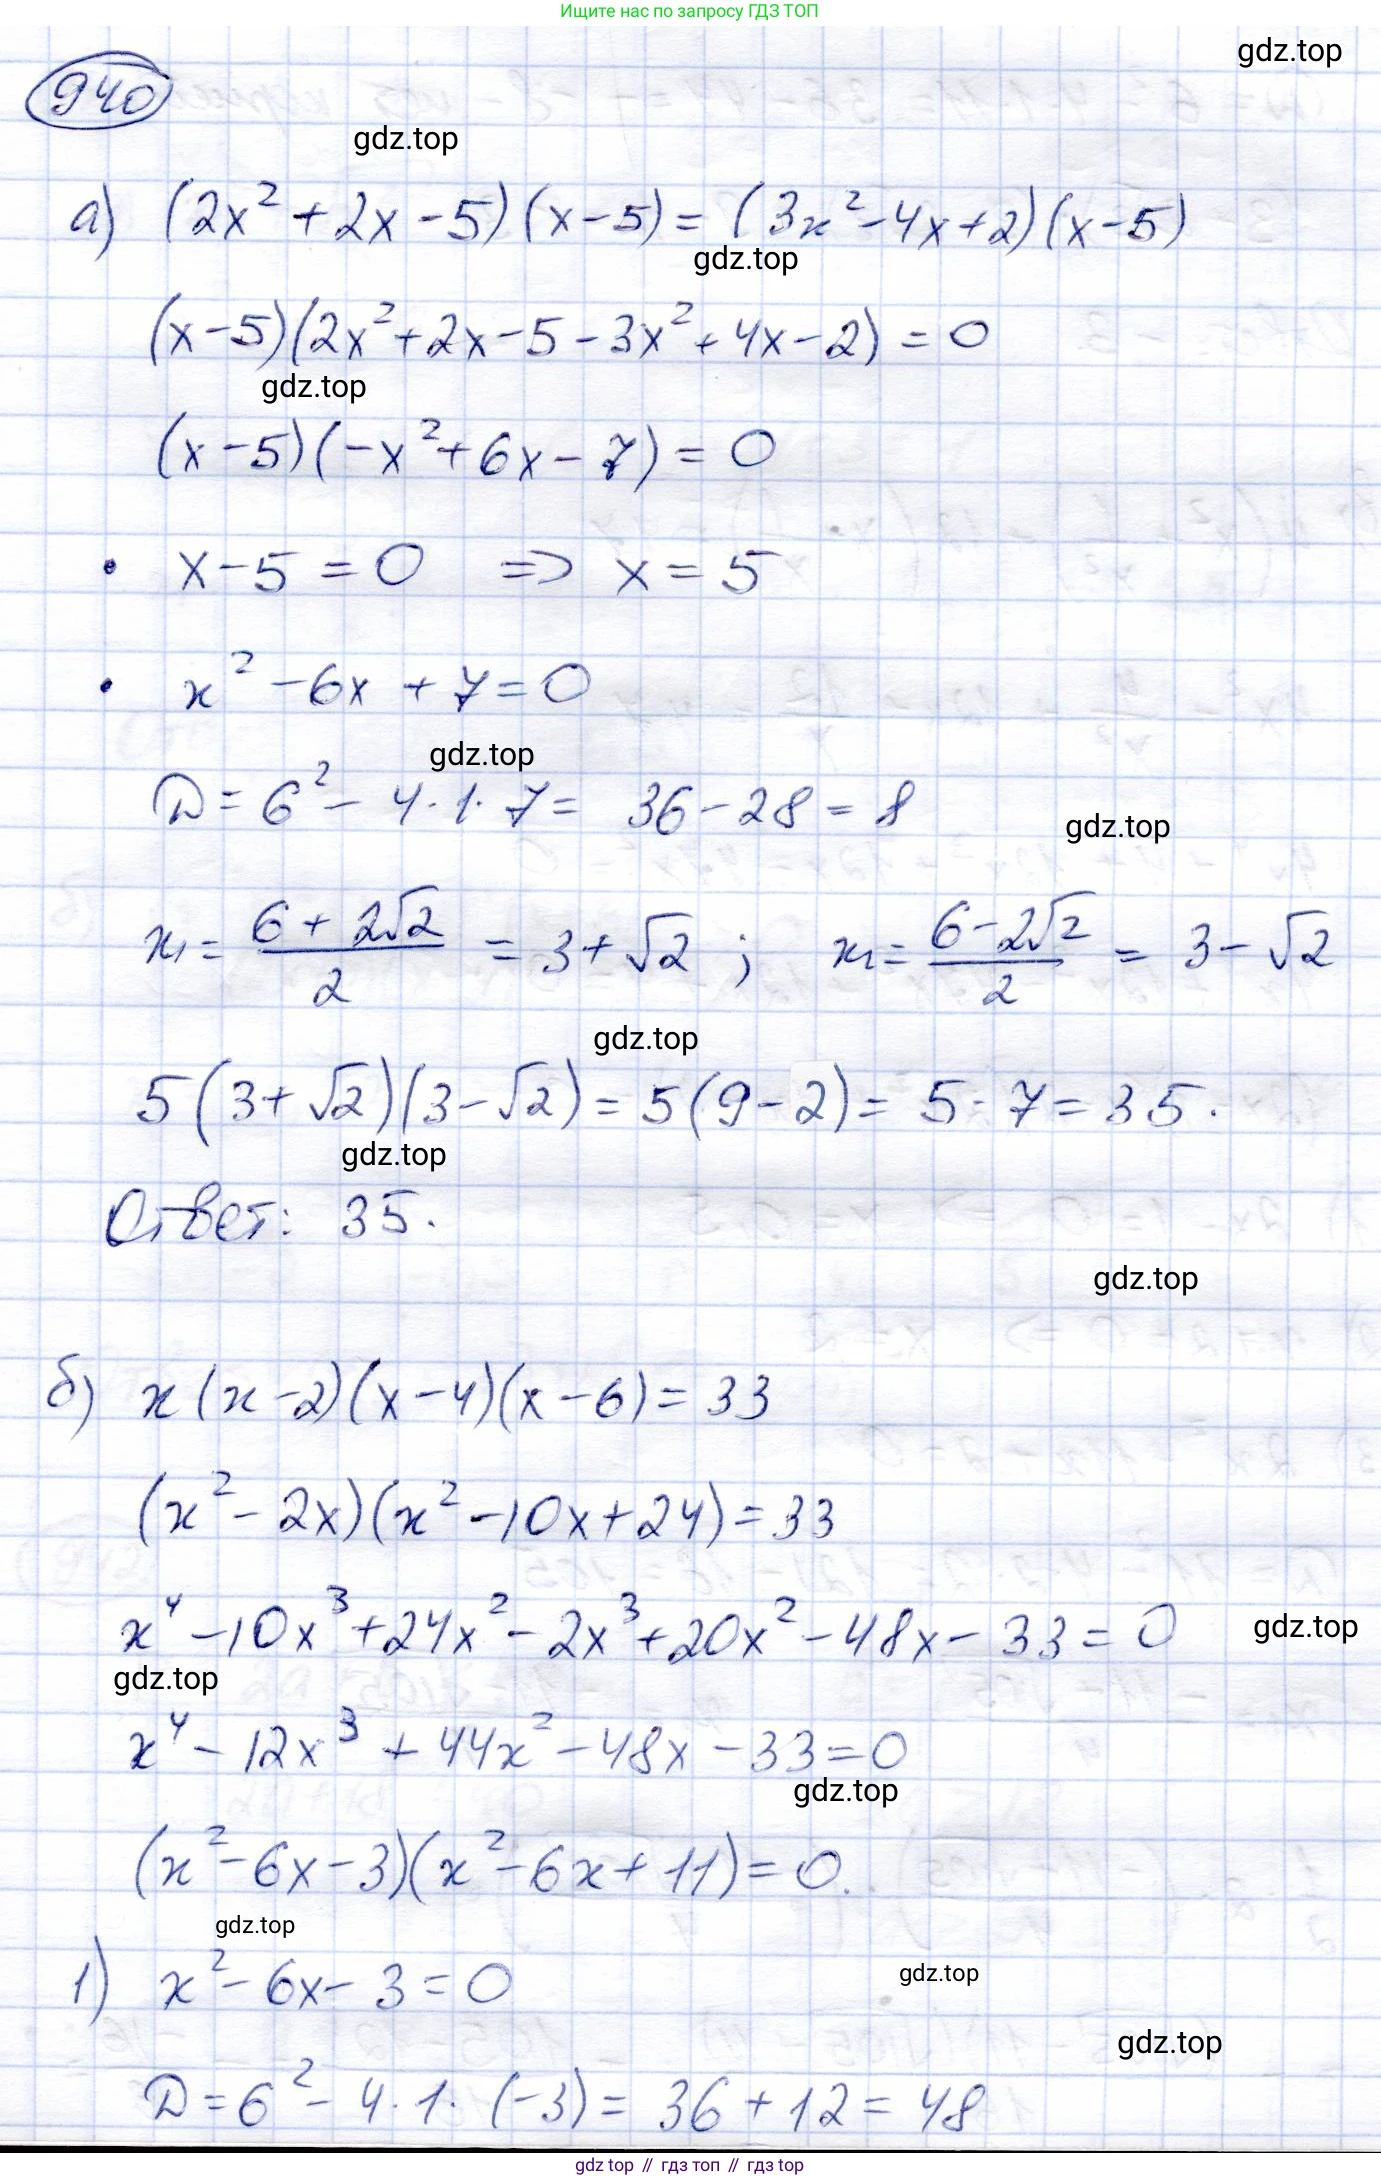 Ищите нас по запросу ГДЗ ТОП
gdz.top
940
gdz.top
а) (2x² + 2x - 5)(x - 5) = (3x² - 4x + 2)(x - 5)
gdz.top
(x - 5)(2x² + 2x - 5 - 3x² + 4x - 2) = 0
gdz.top
(x - 5)(-x² + 6x - 7) = 0
• x - 5 = 0 => x = 5
• x² - 6x + 7 = 0
gdz.top
D = 6² - 4·1·7 = 36 - 28 = 8
gdz.top
x₁ = (6 + 2√2)/2 = 3 + √2 ; x₂ = (6 - 2√2)/2 = 3 - √2
gdz.top
5(3 + √2)(3 - √2) = 5(9 - 2) = 5·7 = 35.
gdz.top
Ответ: 35.
gdz.top
б) x(x - 2)(x - 4)(x - 6) = 33
(x² - 2x)(x² - 10x + 24) = 33
x⁴ - 10x³ + 24x² - 2x³ + 20x² - 48x - 33 = 0
gdz.top
gdz.top
x⁴ - 12x³ + 44x² - 48x - 33 = 0
gdz.top
(x² - 6x - 3)(x² - 6x + 11) = 0.
gdz.top
1) x² - 6x - 3 = 0
gdz.top
gdz.top
D = 6² - 4·1·(-3) = 36 + 12 = 48
gdz top // гдз топ // гдз top